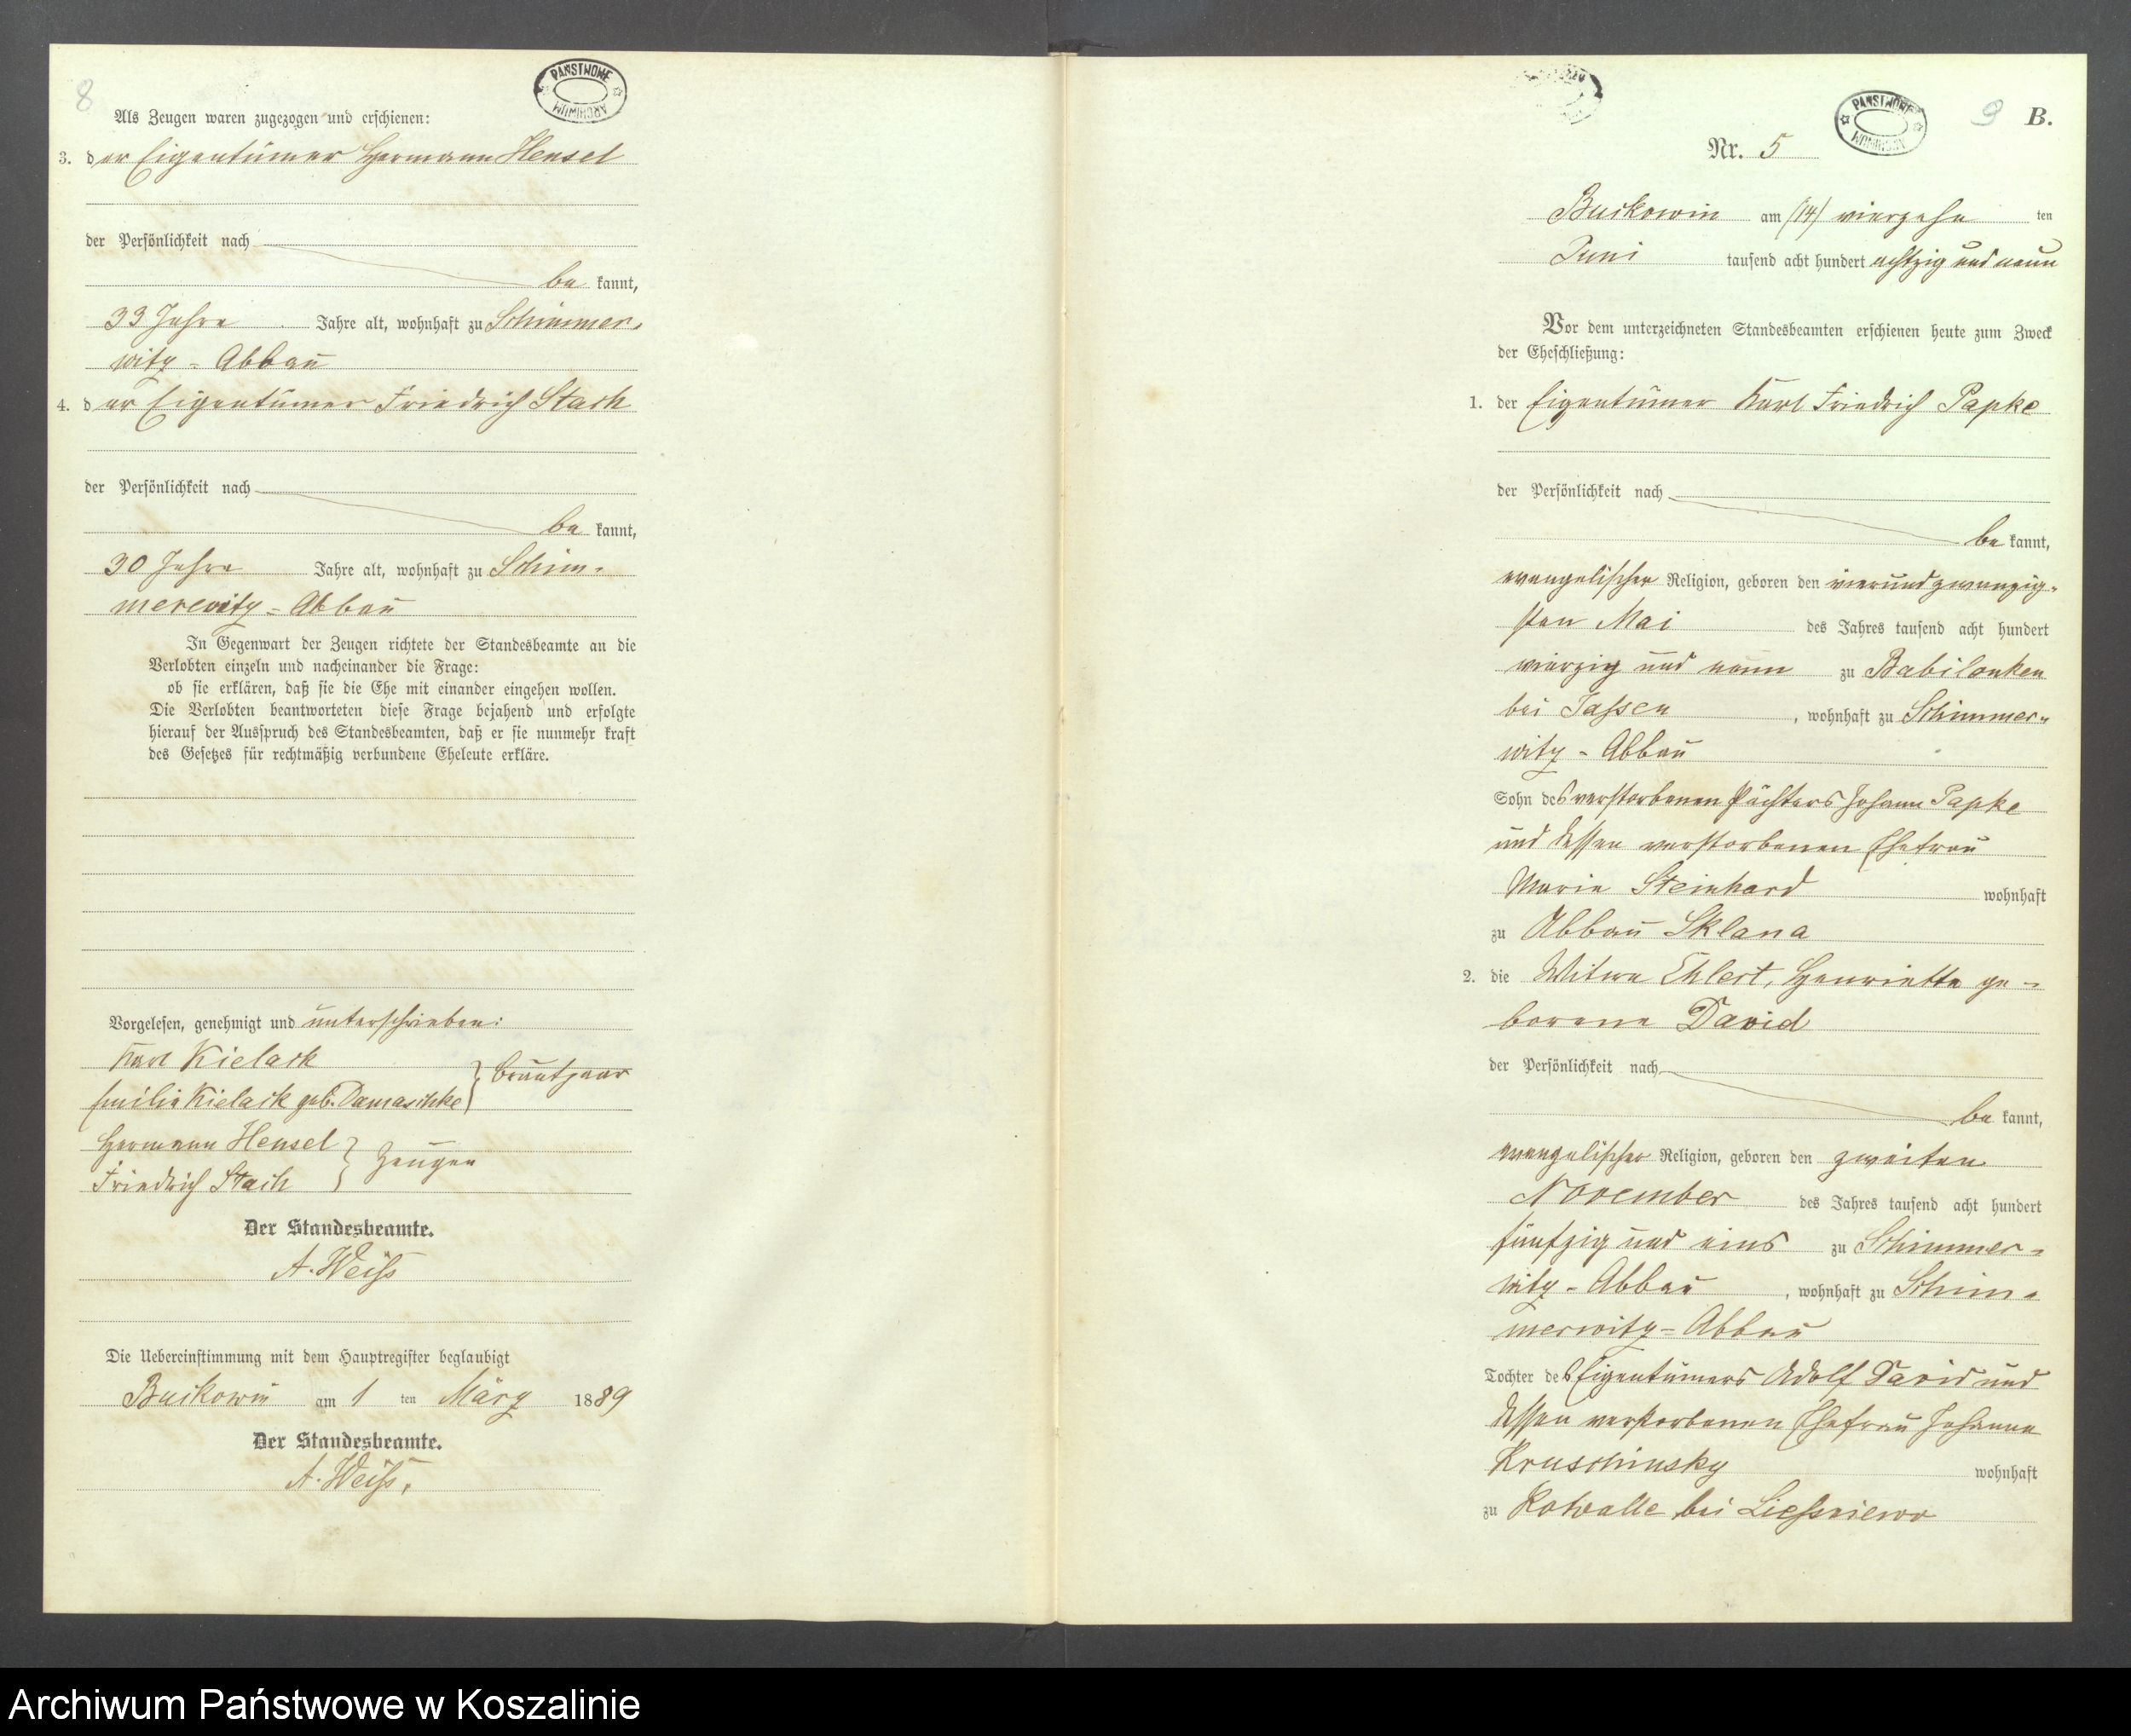 8
PAŃSTWOWE
ARCHIWUM
Als Zeugen waren zugezogen und erschienen:
3. der Eigentümer Hermann Hensel
der Persönlichkeit nach
be kannt,
33 Jahre Jahre alt, wohnhaft zu Schimmer-
witz - Abbau
4. der Eigentümer Friedrich Stach
der Persönlichkeit nach
be kannt,
30 Jahre Jahre alt, wohnhaft zu Schim-
merwitz - Abbau
In Gegenwart der Zeugen richtete der Standesbeamte an die
Verlobten einzeln und nacheinander die Frage:
ob sie erklären, daß sie die Ehe mit einander eingehen wollen.
Die Verlobten beantworteten diese Frage bejahend und erfolgte
hierauf der Ausspruch des Standesbeamten, daß er sie nunmehr kraft
des Gesetzes für rechtmäßig verbundene Eheleute erkläre.
Vorgelesen, genehmigt und unterschrieben:
Karl Kielack
Emilie Kielack geb. Damaschke } Brautpaar
Hermann Hensel
Friedrich Stach } Zeugen
Der Standesbeamte.
A. Weiß
Die Uebereinstimmung mit dem Hauptregister beglaubigt
Buckowin am 1 ten März 1889
Der Standesbeamte.
A. Weiß.
PAŃSTWOWE
ARCHIWUM
9 B.
Nr. 5
Buckowin am (14) vierzehn ten
Juni tausend acht hundert achtzig und neun
Vor dem unterzeichneten Standesbeamten erschienen heute zum Zweck
der Eheschließung:
1. der Eigentümer Karl Friedrich Papke
der Persönlichkeit nach
be kannt,
evangelischer Religion, geboren den vierundzwanzig-
sten Mai des Jahres tausend acht hundert
vierzig und neun zu Babilonken
bei Jassen, wohnhaft zu Schimmer-
witz - Abbau
Sohn des verstorbenen Pächters Johann Papke
und dessen verstorbenen Ehefrau
Marie Steinhard wohnhaft
zu Abbau Sklana
2. die Witwe Ehlert, Henriette ge-
borene David
der Persönlichkeit nach
be kannt,
evangelischer Religion, geboren den zweiten
November des Jahres tausend acht hundert
fünfzig und eins zu Schimmer-
witz - Abbau, wohnhaft zu Schim-
merwitz - Abbau
Tochter des Eigentümers Adolf David und
dessen verstorbenen Ehefrau Johanna
Kruschinsky wohnhaft
zu bei
Archiwum Państwowe w Koszalinie